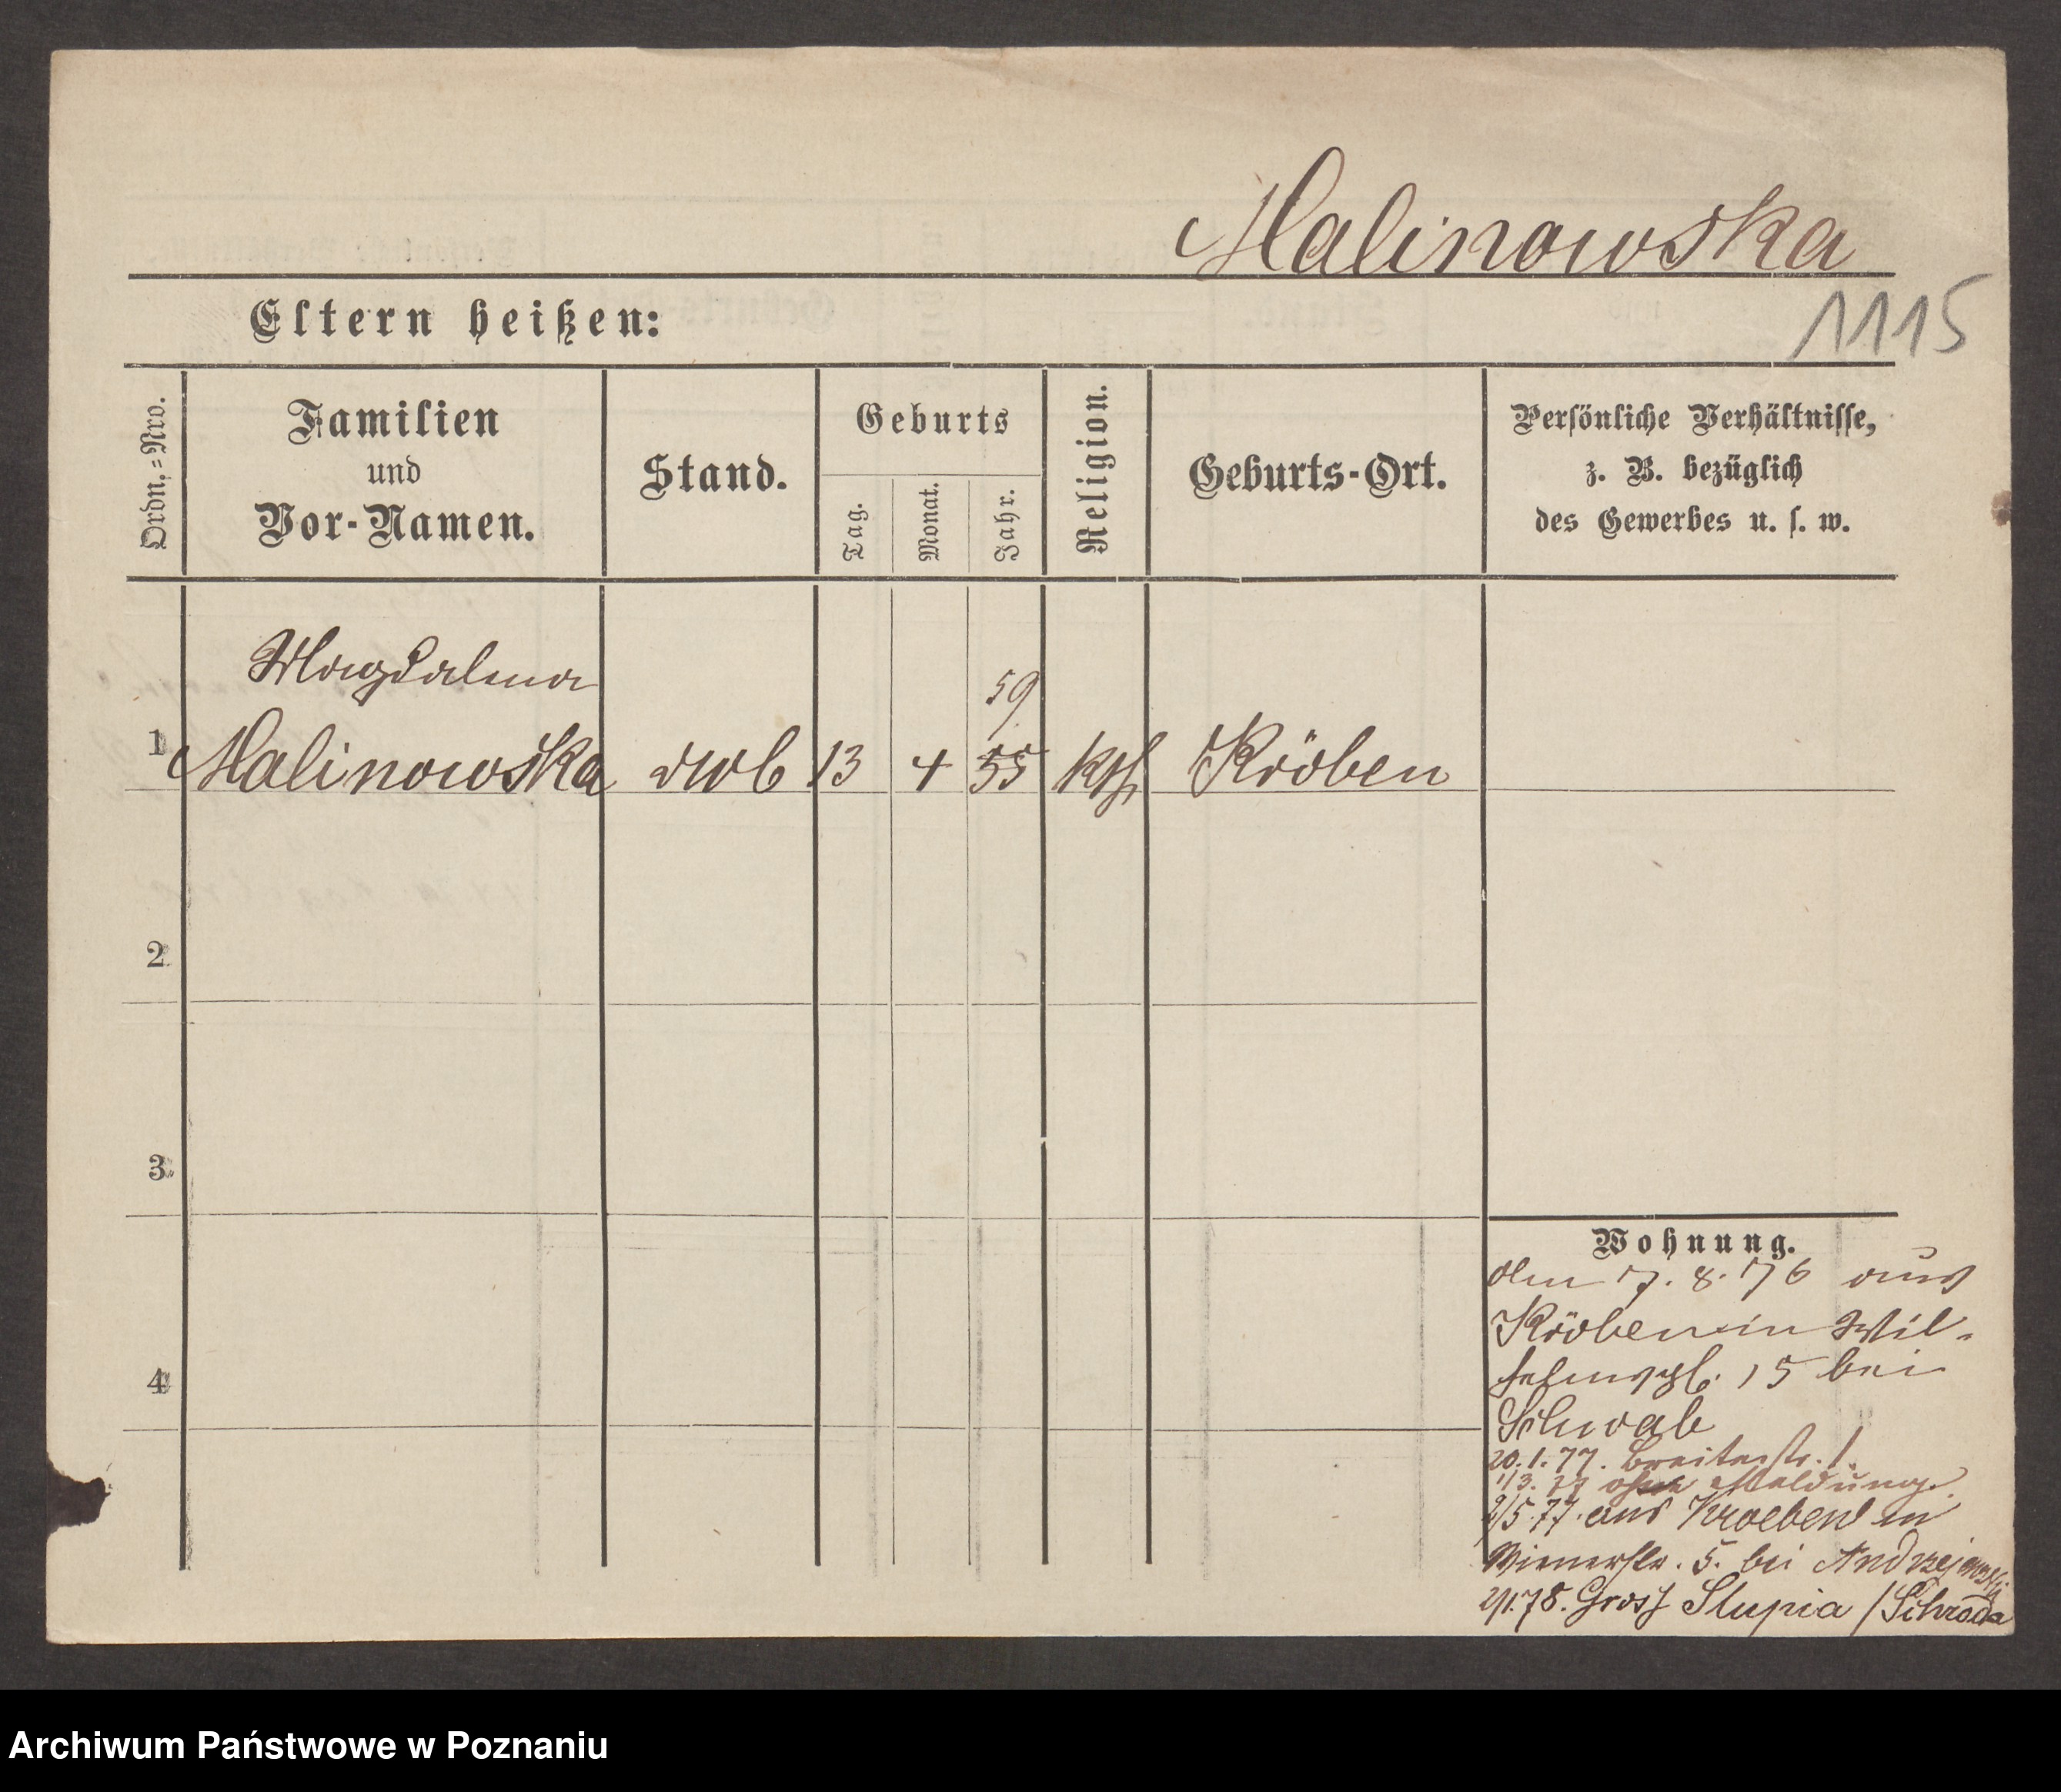 Malinowska
1115
Eltern heißen:
Ordn.=Nro.
Familien
und
Vor-Namen.
Stand.
Geburts
Tag.
Monat.
Jahr.
Religion.
Geburts-Ort.
Persönliche Verhältnisse,
z. B. bezüglich
des Gewerbes u. s. w.
Magdalena
59
1 Malinowska 13 4 55 kth Kröben
2
3
4
Wohnung.
7. 8. 76 aus
Kröben in Wil-
helmspl. 15 bei
Schwab
20.1.77. Breitestr. 1.
1/3. 77 ohne Meldung.
9/5.77. aus Kroeben in
Wienerstr. 5. bei Andrzejewski
2/1.78. Gross Slupia / Schroda
Archiwum Państwowe w Poznaniu